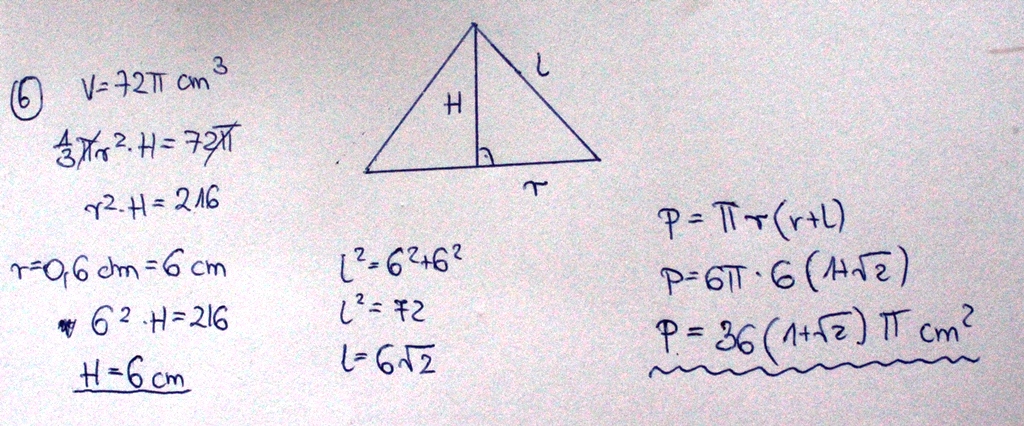 6
V=72π cm³
1/3 πr²·H=72π
r²·H=216
r=0,6 dm=6 cm
6²·H=216
H=6 cm
H
l
r
l²=6²+6²
l²=72
l=6√2
P=πr(r+l)
P=6π·6(1+√2)
P=36(1+√2)π cm²